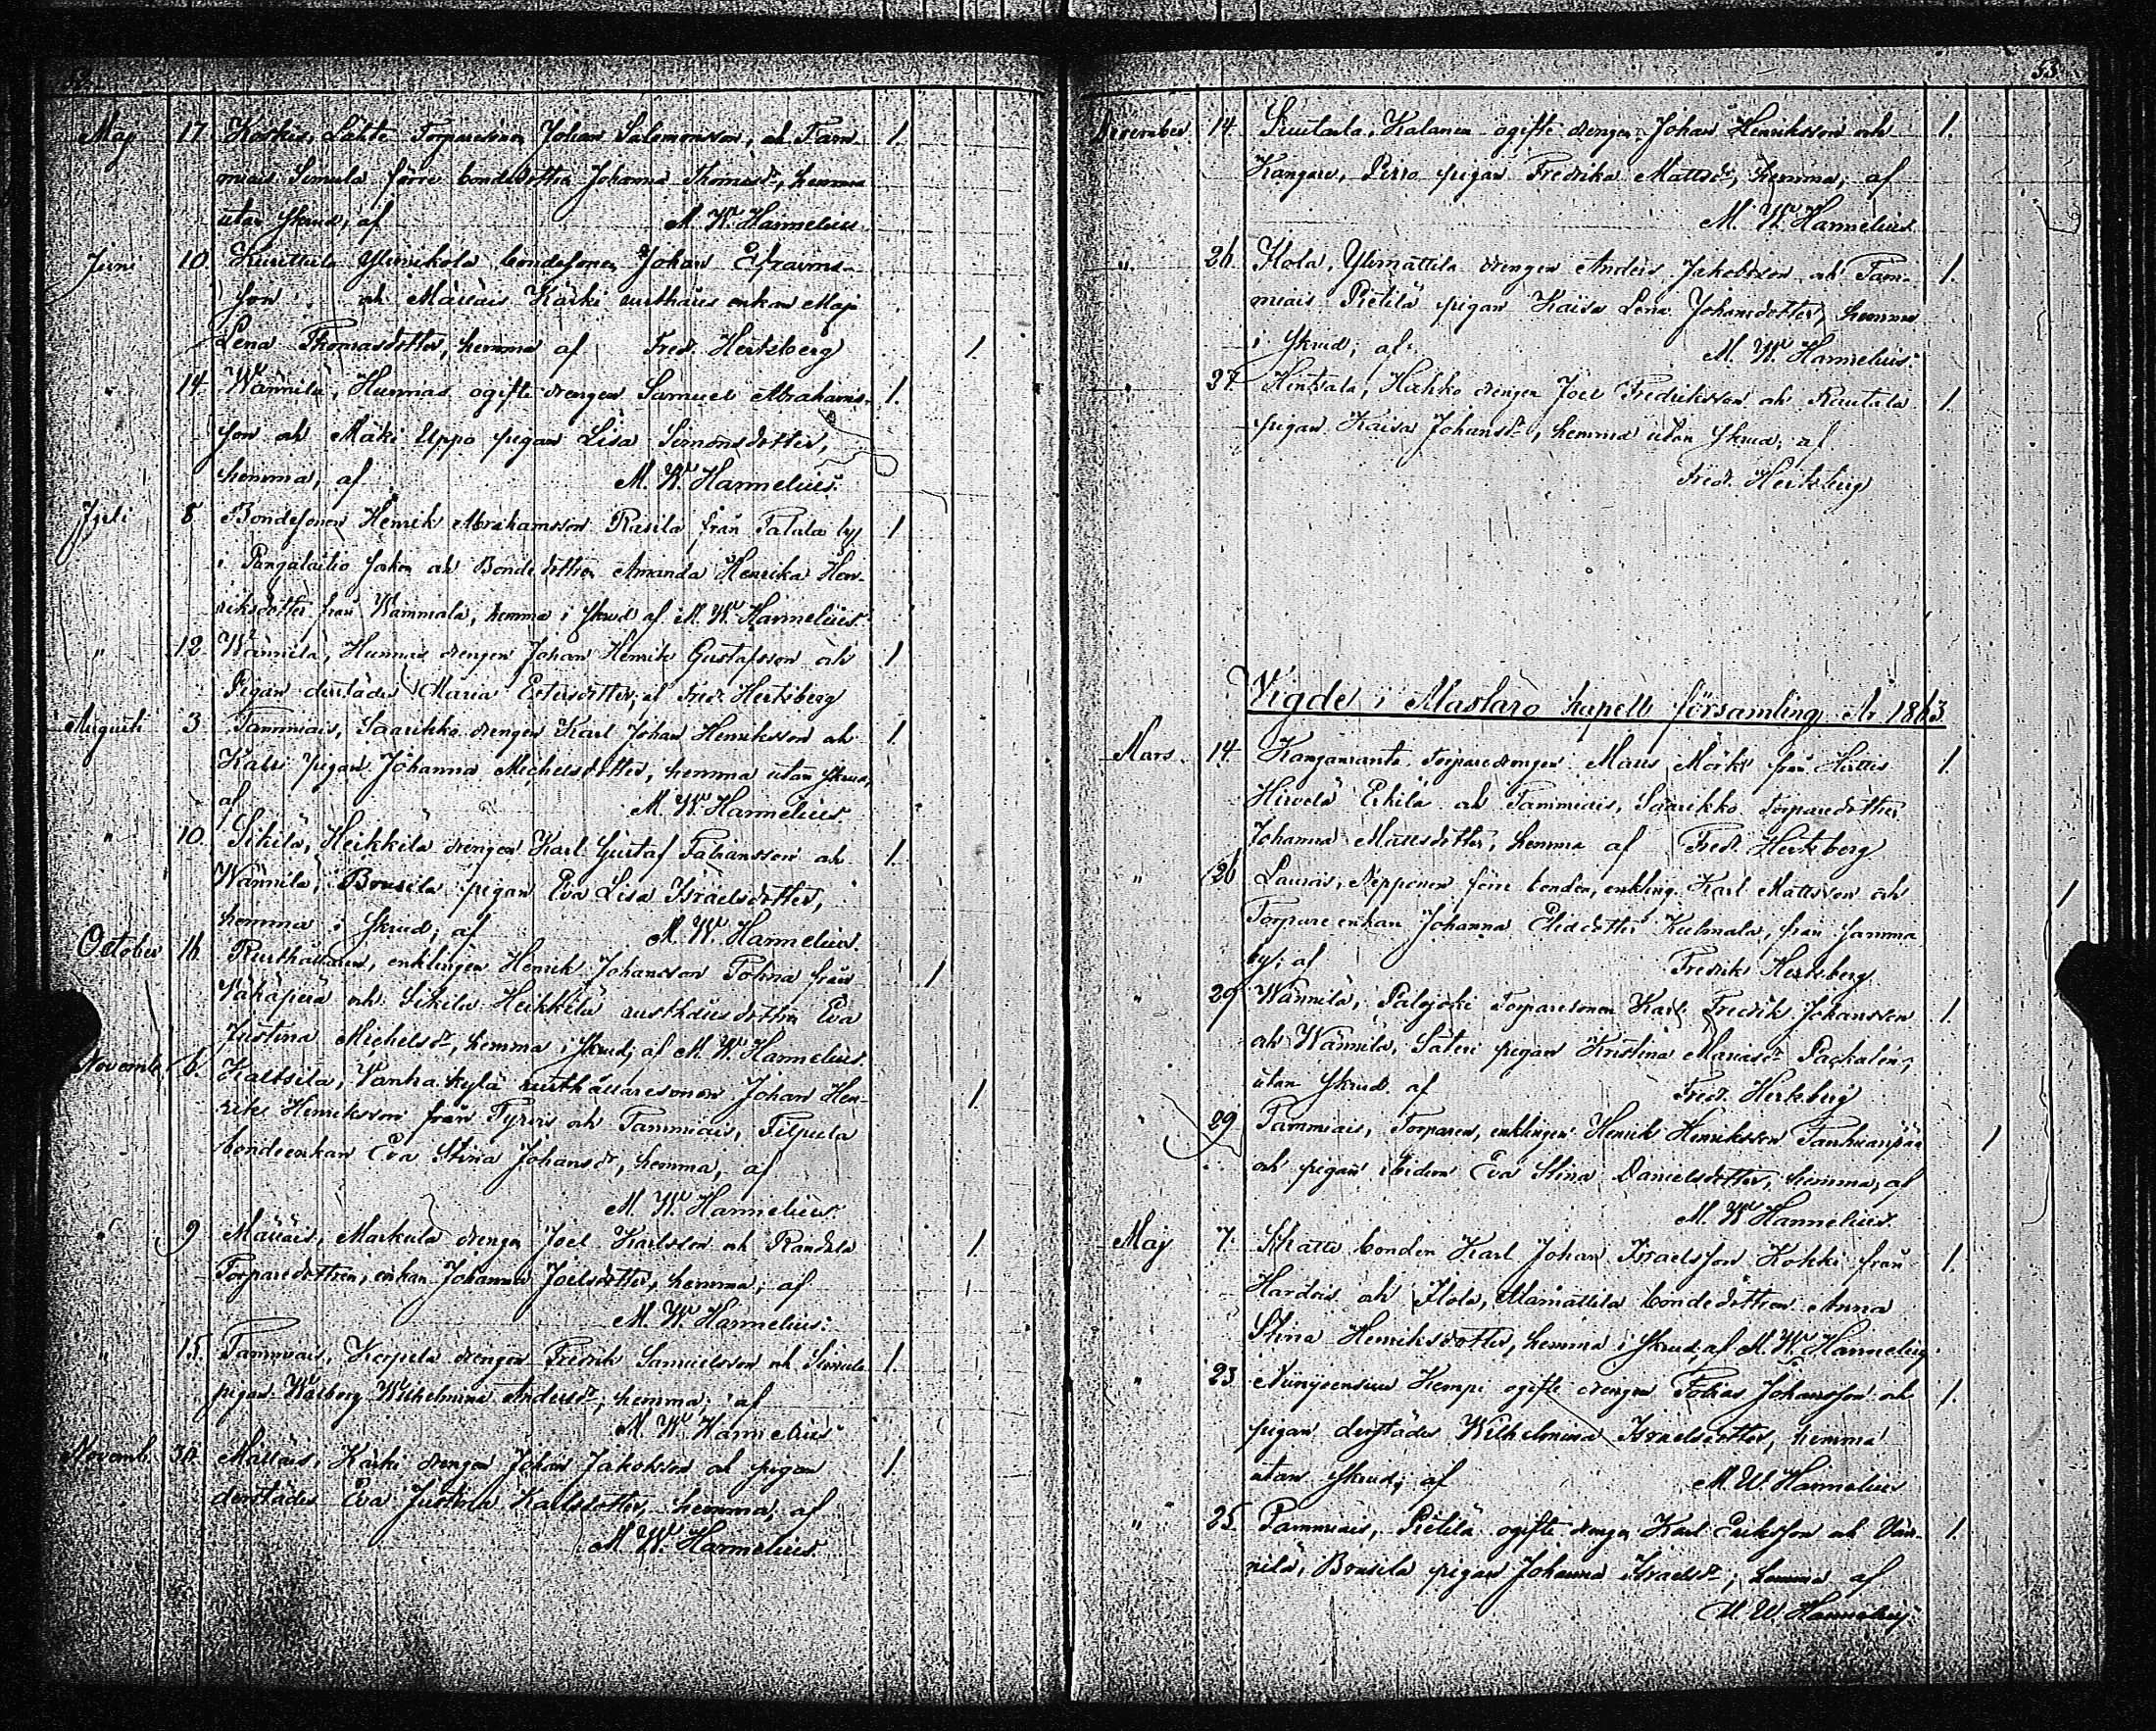 52.
Maj 17. Koskis, Lähte Torparesonen Johan Salomonsson, och Tam- 1.
miais Simula förre bondedottren Johanna Thomasdr, hemma
utan skrud, af M. W. Hannelius.
Juni 10. Kurittula Ylinikola bondesonen Johan Efraims-
son och Mälläis Kärki rusthålls enkan Maja
Lena Thomasdotter, hemma af Fred. Hertzberg 1.
" 14. Wännilä, Hunnas ogifte drengen Samuel Abrahams- 1.
son och Mäki Uppo pigan Lisa Simonsdotter,
hemma, af M. W. Hannelius.
Juli 8. Bondesonen Henrik Abrahamsson Rasila från Talala by 1
i Pungalaitio socken och Bondedottren Amanda Henrika Hen-
riksdotter från Wammala, hemma i skrud af M. W. Hannelius.
" 12. Wännilä, Hunnas drengen Johan Henrik Gustafsson och 1
Pigan derstädes Maria Estersdotter, af Fred. Hertzberg
Augusti 3 Tammiais, Saarikko drengen Karl Johan Henriksson och 1.
pigan Johanna Michelsdotter, hemma utan skrud,
af M. W. Hannelius
" 10. Sikilä, Heikkilä drengen Karl Gustaf Fabiansson och 1.
Wännilä, Brusila pigan Eva Lisa Israelsdotter,
hemma i skrud, af M. W. Hannelius.
October 16. Rusthållaren, enklingen Henrik Johansson Tolna från 1
Vähäperä och Sikilä Heikkilä rusthållsdottren Eva
Justina Michelsdr, hemma i skrud, af M. W. Hannelius.
Novemb. 6. Kaltsila, Vanhakylä rusthållaresonen Johan Hen- 1.
rik Henriksson från Tyrvis och Tammiais, Filpula
bondeenkan Eva Stina Johansdr, hemma, af
M. W. Hannelius.
" 9 Mälläis, Markula drengen Joel Karlsson och Randala 1.
Torparedottren, enkan Johanna Joelsdotter, hemma, af
M. W. Hannelius.
" 15. Tammiais, Kerpela drengen Fredrik Samuelsson och Simula 1.
pigan Walborg Wilhelmina Andersdr, hemma, af
M. W. Hannelius
Novemb. 30. Mälläis, Kärki drengen Johan Jakobsson och pigan 1
derstädes Eva Justina Karlsdotter, hemma, af
M. W. Hannelius.
53.
December 14. Suutarla, Kalanen ogifte drengen Johan Henriksson och 1.
Kangare, Pirro pigan Fredrika Mattsdr, hemma, af
M. W. Hannelius.
" 26 Ilola, Ylimattila drengen Anders Jakobsson och Tam- 1.
miais Pietilä pigan Kaisa Lena Johansdotter, hemma
i skrud, af M. W. Hannelius.
" 27. Hintsala, Hahko drengen Joel Fredriksson och Rautala 1.
pigan Kaisa Johansdr, hemma utan skrud, af
Fred. Hertzberg
Vigde i Alastaro kapell församling År 1863.
Mars 14. Kanganranta torparedrengen Matts Mörk från Hattis 1.
Hirvelä Erkilä och Tammiais, Saarikko torparedotter
Johanna Mattsdotter, hemma af Fred. Hertzberg
" 26 Lauräis, Nepponen förre bonden, enkling. Karl Mattsson och 1
Torpare enkan Johanna Eliedotter Kulmala, från samma
by; af Fredrik Hertzberg
" 29 Wännilä, Palojoki torparesonen Karl Fredrik Johansson 1.
och Wännilä, Säteri pigan Kristina Mariasdr Packalén,
utan skrud af Fred. Hertzberg
" 29 Tammiais, Torparen, enklingen Henrik Henriksson Tanhuanpää 1
och pigan ibidem Eva Stina Danielsdotter, hemma, af
M. W. Hannelius.
Maj 7. Skatte bonden Karl Johan Israelsson Kokki från 1.
Hardeis och Ilola, Alamattila bondedottren Anna
Stina Henriksdotter, hemma i skrud, af M. W. Hannelius.
" 23. Niinijoensuu Kempi ogifte drengen Tobias Johansson och 1.
pigan derstädes Wilhelmina Israelsdotter, hemma
utan skrud, af M. W. Hannelius
" 25. Tammiais, Pietilä ogifte drengen Karl Eriksson och Vän- 1.
nilä, Brusila pigan Johanna Israelsdr, hemma af
M. W. Hannelius.